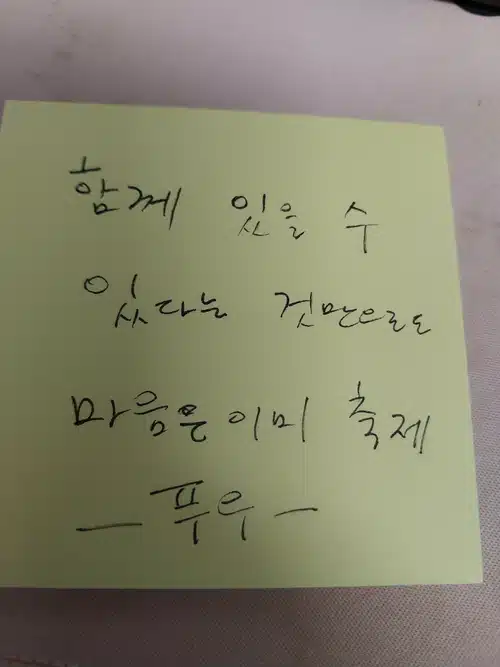 함께 있을 수
있다는 것만으로도
마음은 이미 축제
- 푸우 -